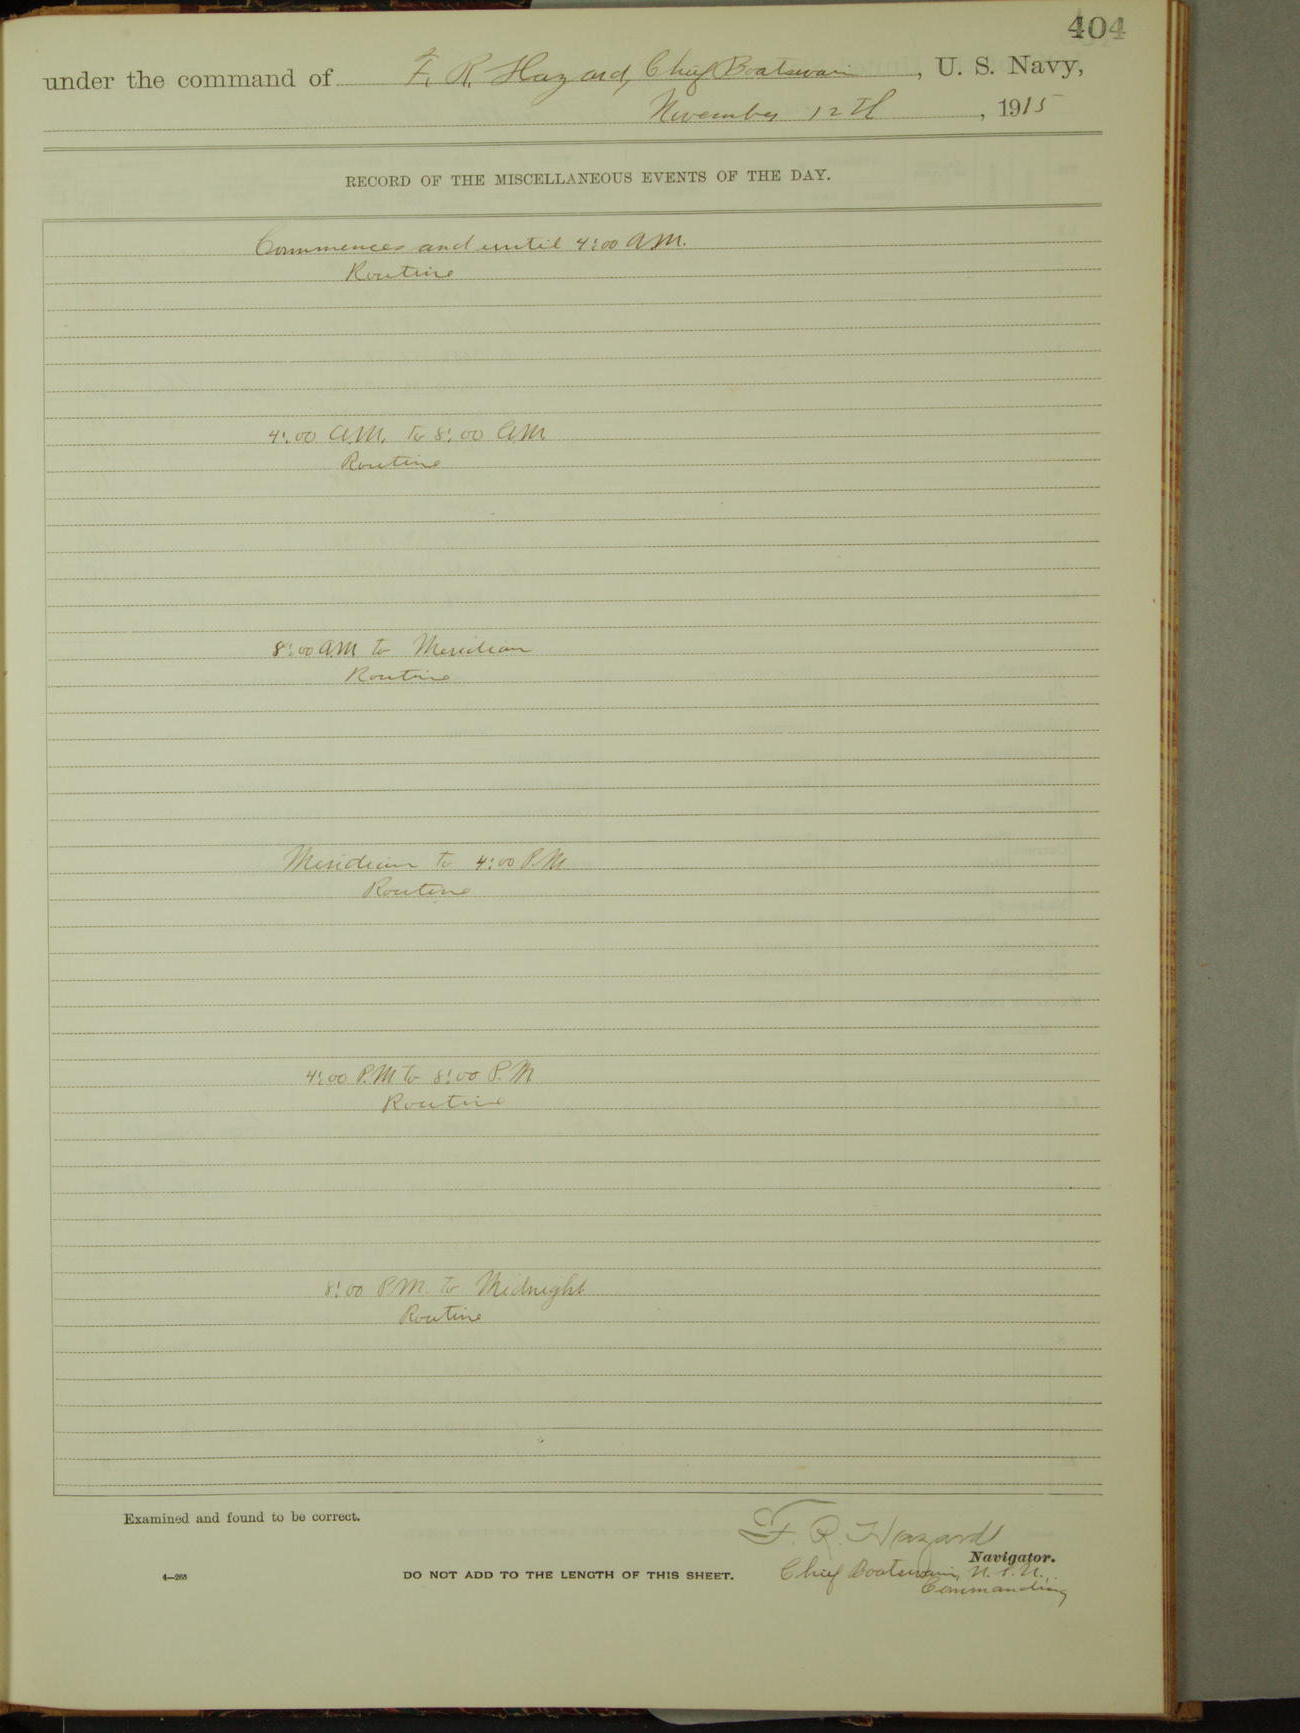 404
under the command of F. R. Hazard, Chief Boatswain, U. S. Navy,
November 12th, 1915
RECORD OF THE MISCELLANEOUS EVENTS OF THE DAY.
Commences and until 4:00 A.M.
Routine
4:00 A.M. to 8:00 A.M
Routine
8:00 A.M to Meridian
Routine
Meridian to 4:00 P.M
Routine
4:00 P.M to 8:00 P.M
Routine
8:00 P.M. to Midnight
Routine
Examined and found to be correct.
F. R. Hazard
Navigator.
Chief Boatswain, U.S.N.,
Commanding
4—265
DO NOT ADD TO THE LENGTH OF THIS SHEET.